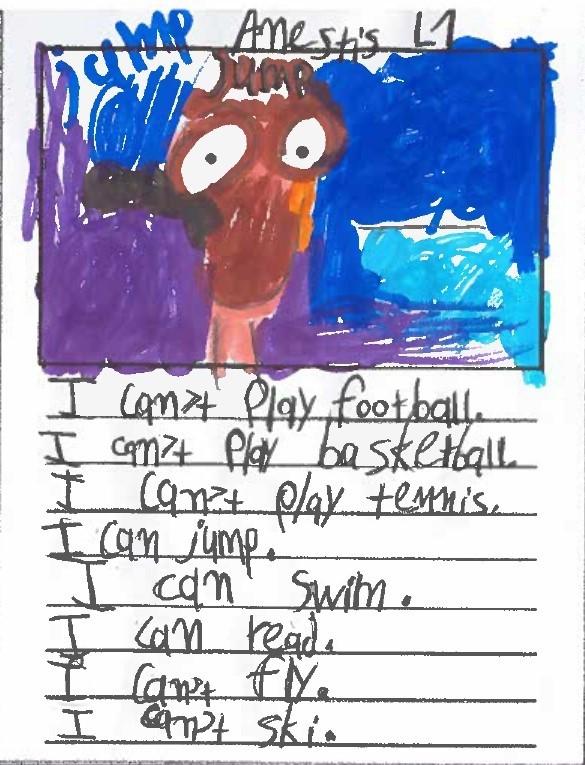 Anestis L1
jump
jump
I can't play football.
I can't play basketball.
I can't play tennis.
I can jump.
I can swim.
I can read.
I can't fly.
I can't ski.